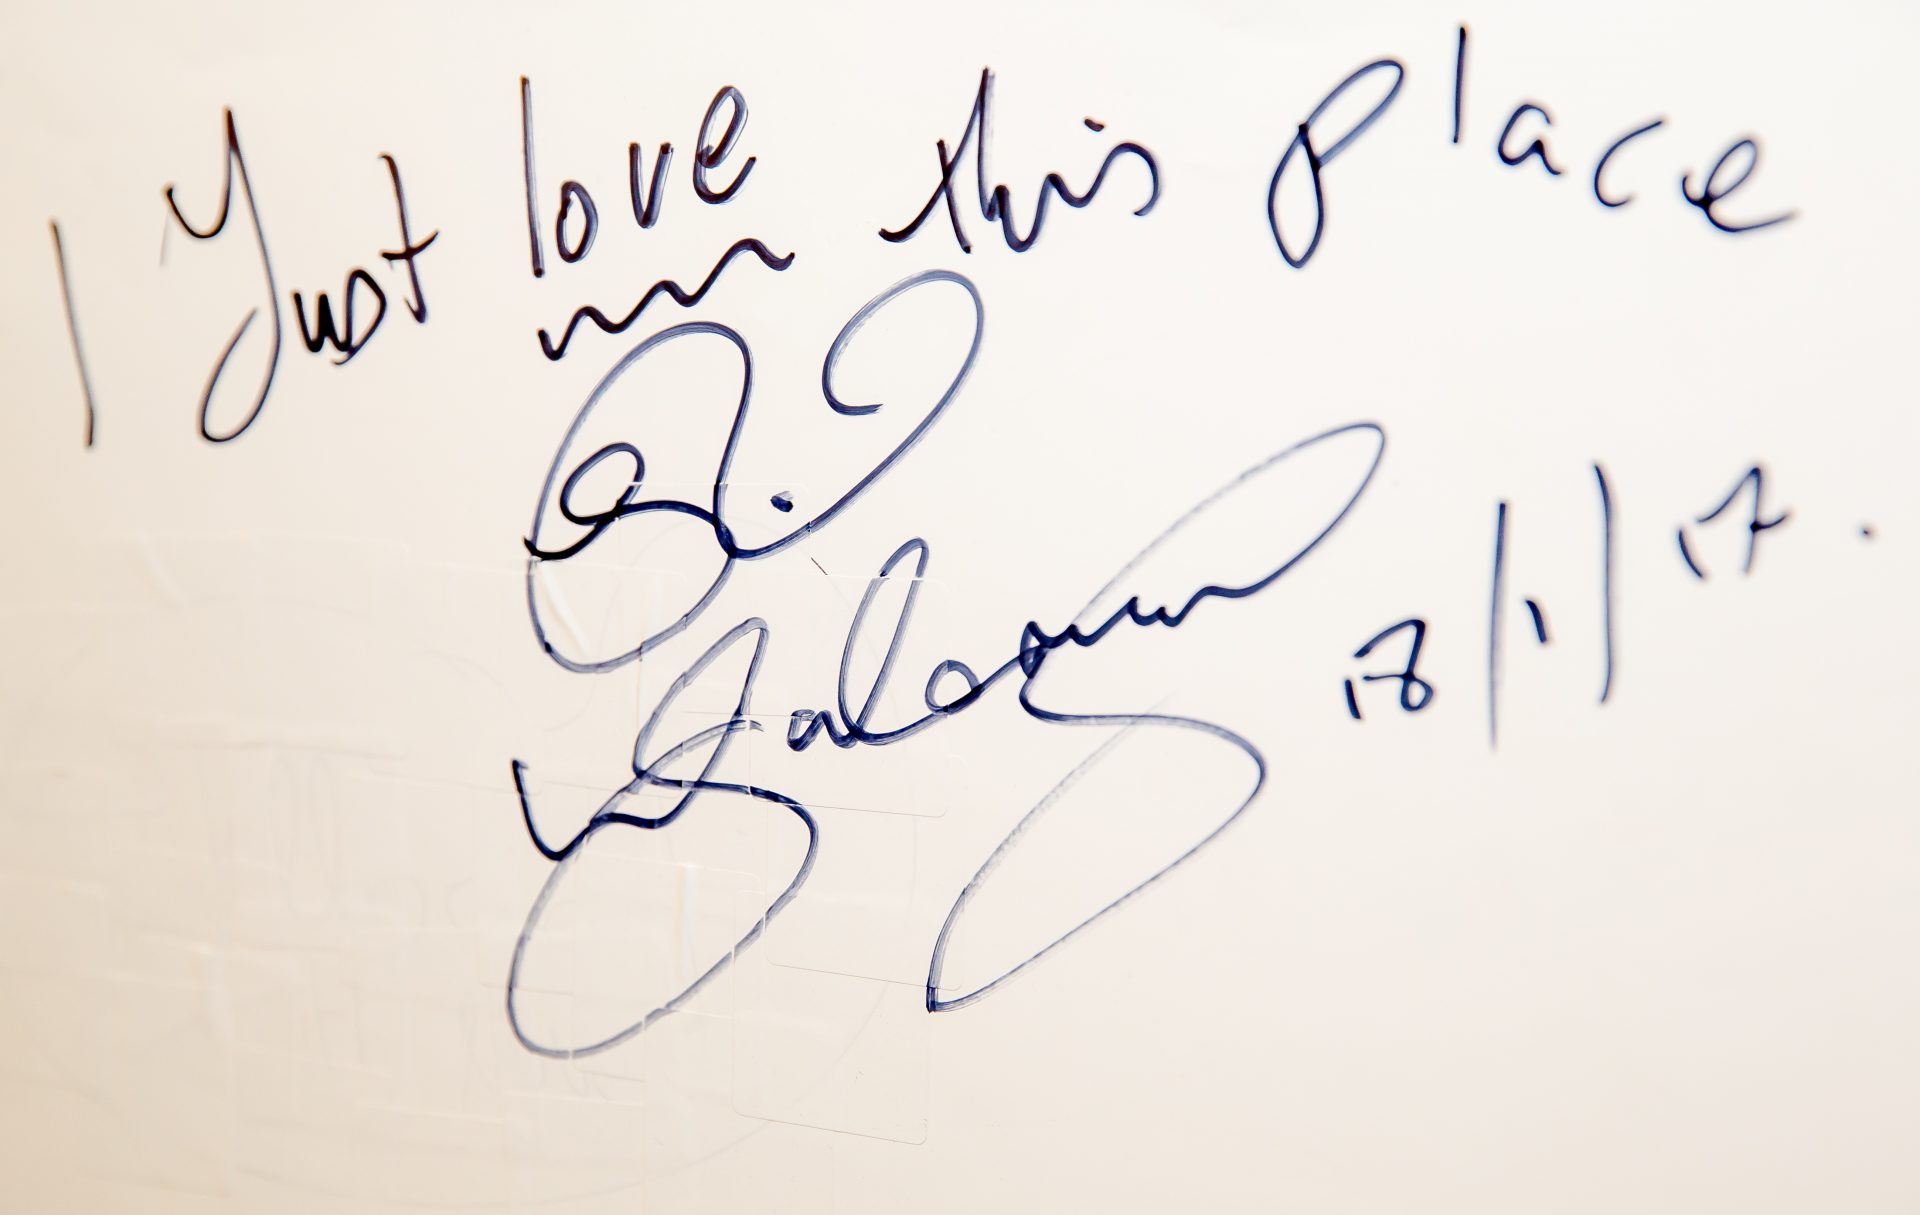 I Just love this place
18/1/17.